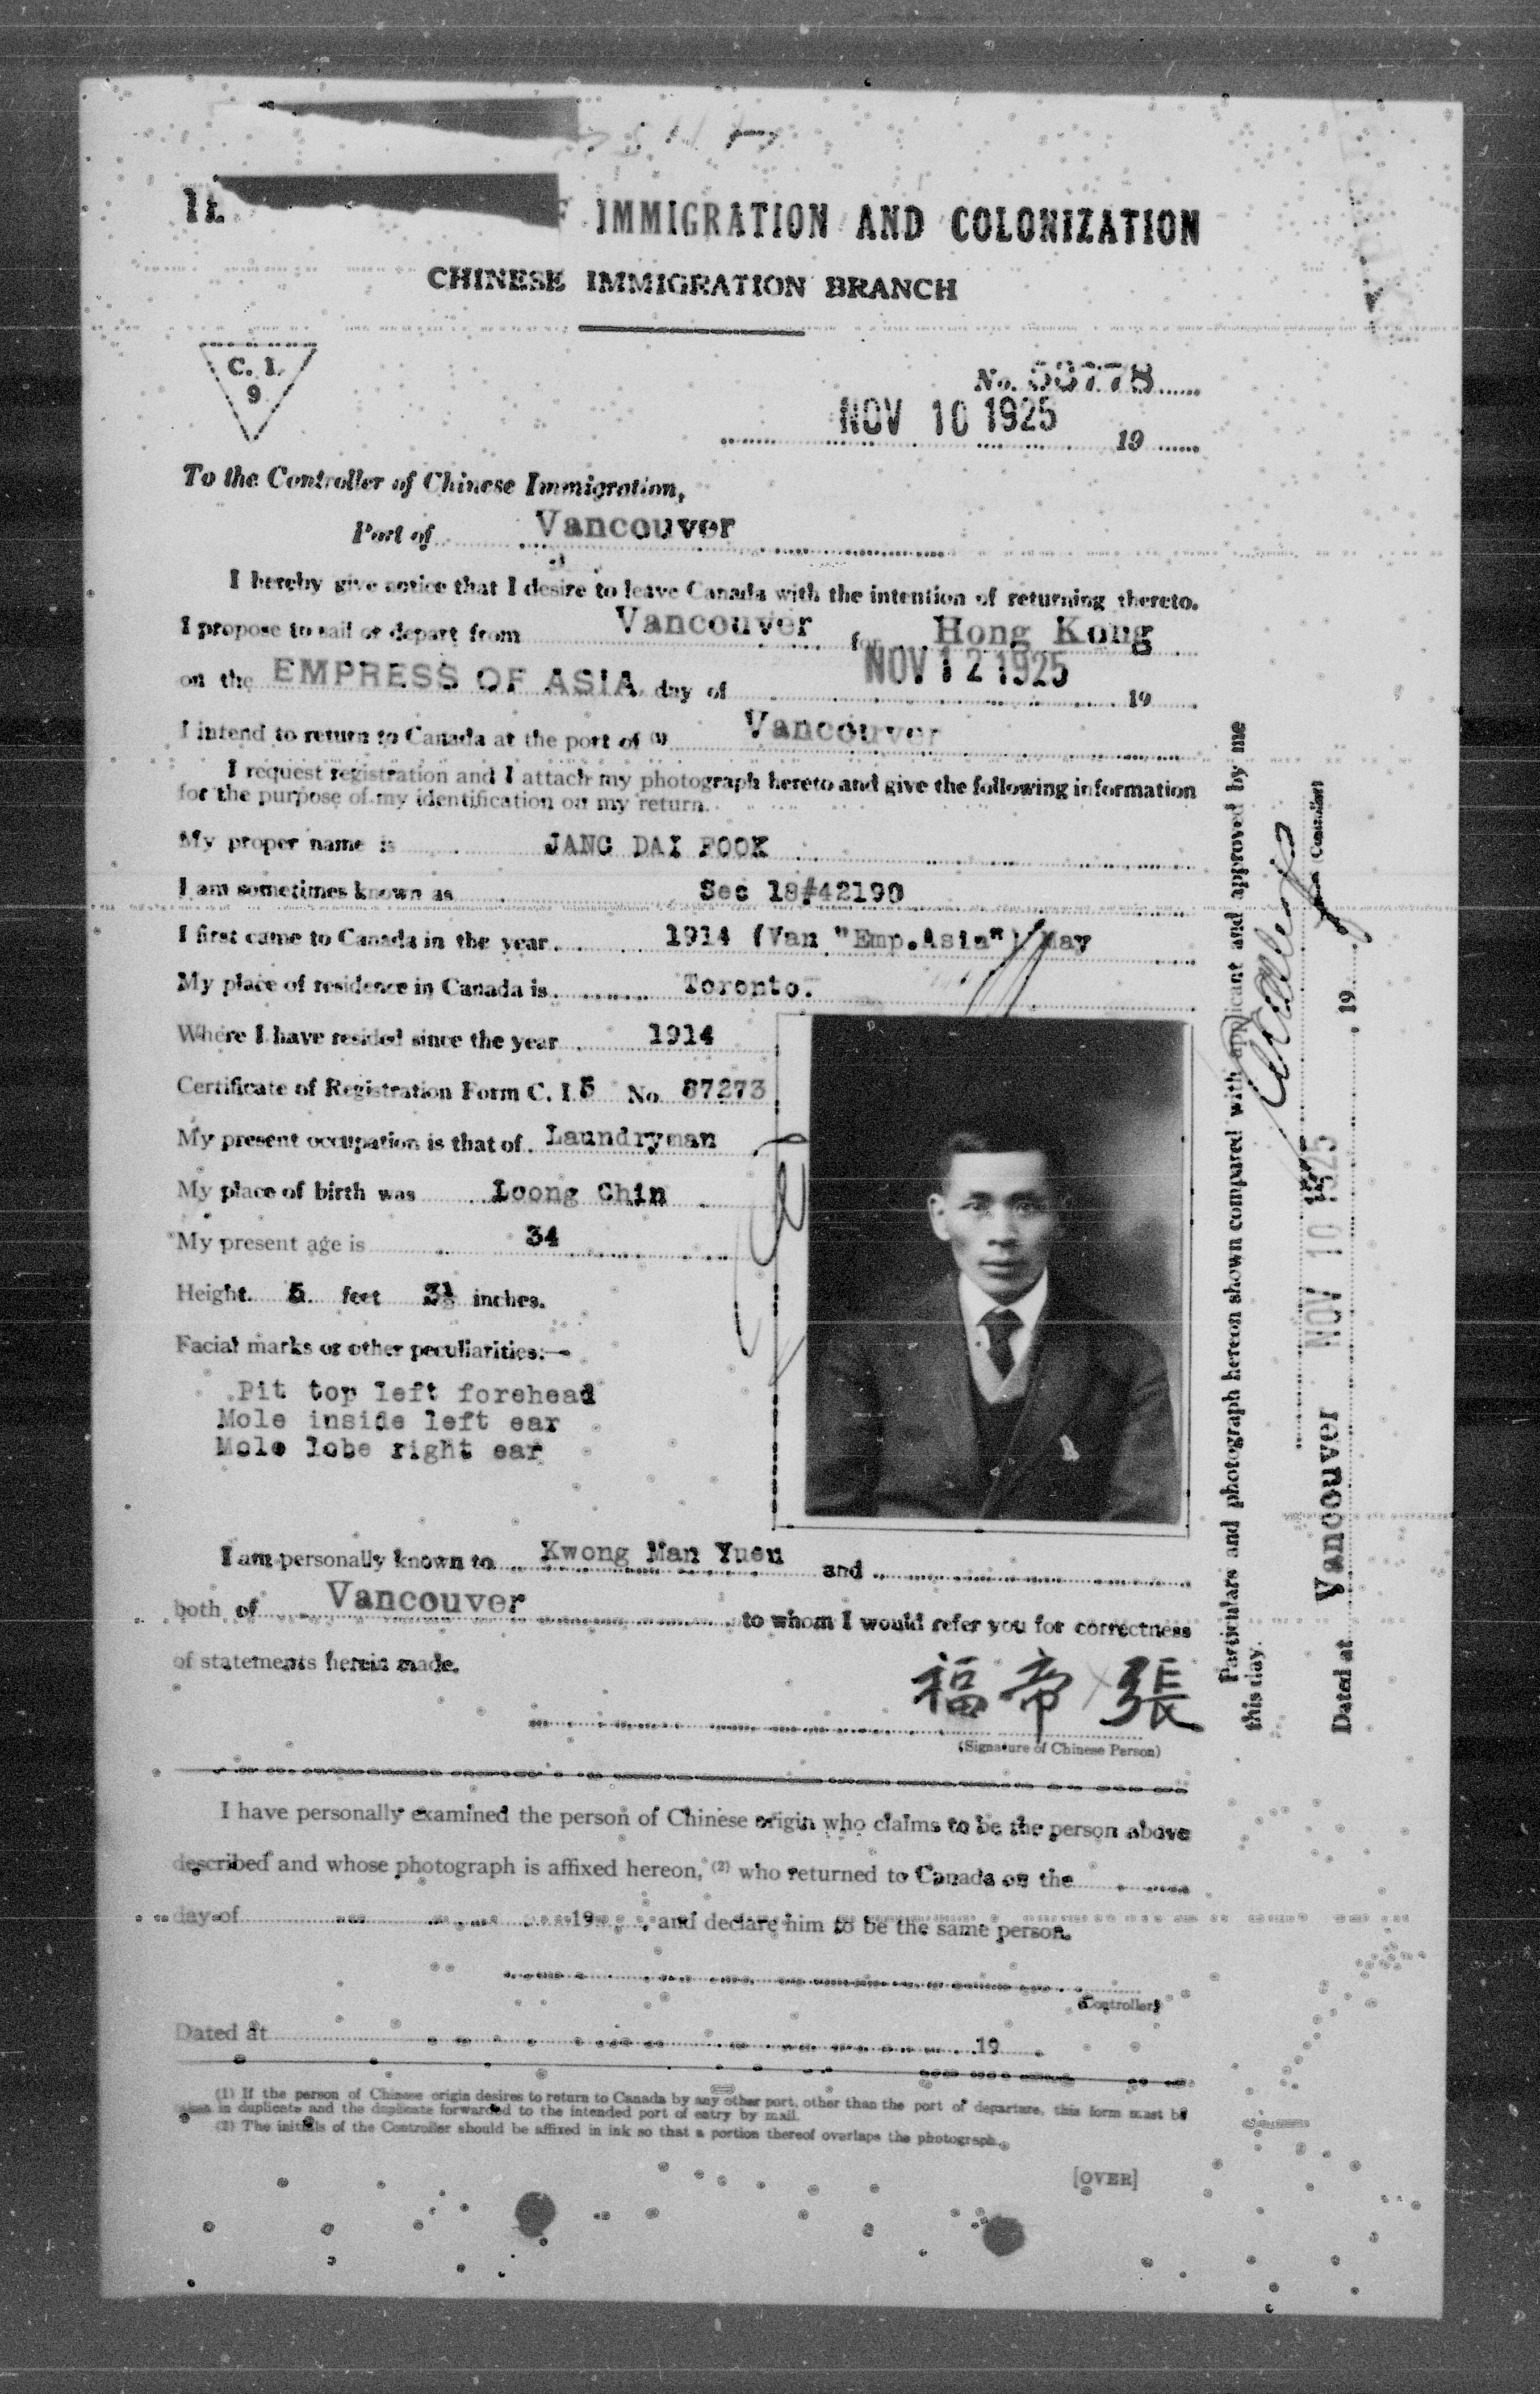 IMMIGRATION AND COLONIZATION
CHINESE IMMIGRATION BRANCH
C. I.
9
No. 53778
NOV 10 1925 19
To the Controller of Chinese Immigration,
Port of Vancouver
I hereby give notice that I desire to leave Canada with the intention of returning thereto.
I propose to sail or depart from Vancouver for Hong Kong
on the EMPRESS OF ASIA day of NOV 12 1925 19
I intend to return to Canada at the port of (1) Vancouver
I request registration and I attach my photograph hereto and give the following information
for the purpose of my identification on my return.
My proper name is JANG DAI FOOK
I am sometimes known as Sec 18#42190
I first came to Canada in the year 1914 (Van "Emp.Asia") May
My place of residence in Canada is Toronto.
Where I have resided since the year 1914
Certificate of Registration Form C. I. 5 No. 87273
My present occupation is that of Laundryman
My place of birth was Loong Chin
My present age is 34
Height 5 feet inches.
Facial marks or other peculiarities:—
Pit top left forehead
Mole inside left ear
Mole lobe right ear
I am personally known to Kwong Man Yuen and
both of Vancouver to whom I would refer you for correctness
of statements herein made.
福帝張
(Signature of Chinese Person)
I have personally examined the person of Chinese origin who claims to be the person above
described and whose photograph is affixed hereon, (2) who returned to Canada on the
day of 19 and declare him to be the same person.
(Controller)
Dated at 19
(1) If the person of Chinese origin desires to return to Canada by any other port, other than the port of departure, this form must be
taken in duplicate and the duplicate forwarded to the intended port of entry by mail.
(2) The initials of the Controller should be affixed in ink so that a portion thereof overlaps the photograph.
[OVER]
Particulars and photograph hereon shown compared with applicant and approved by me
this day.
(Controller)
Dated at Vancouver NOV 10 1925, 19